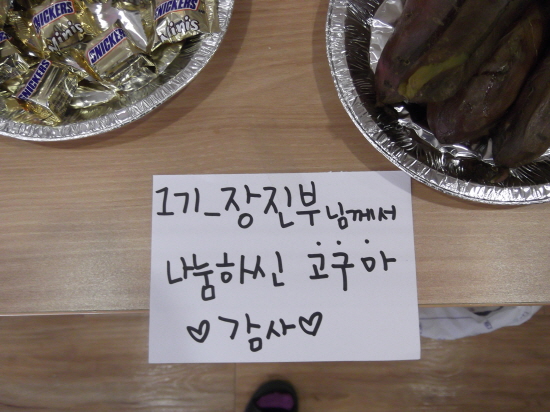 SNICKERS
SNICKERS
SNICKERS
1기_장진부님께서
나눔하신 고구마
♡감사♡